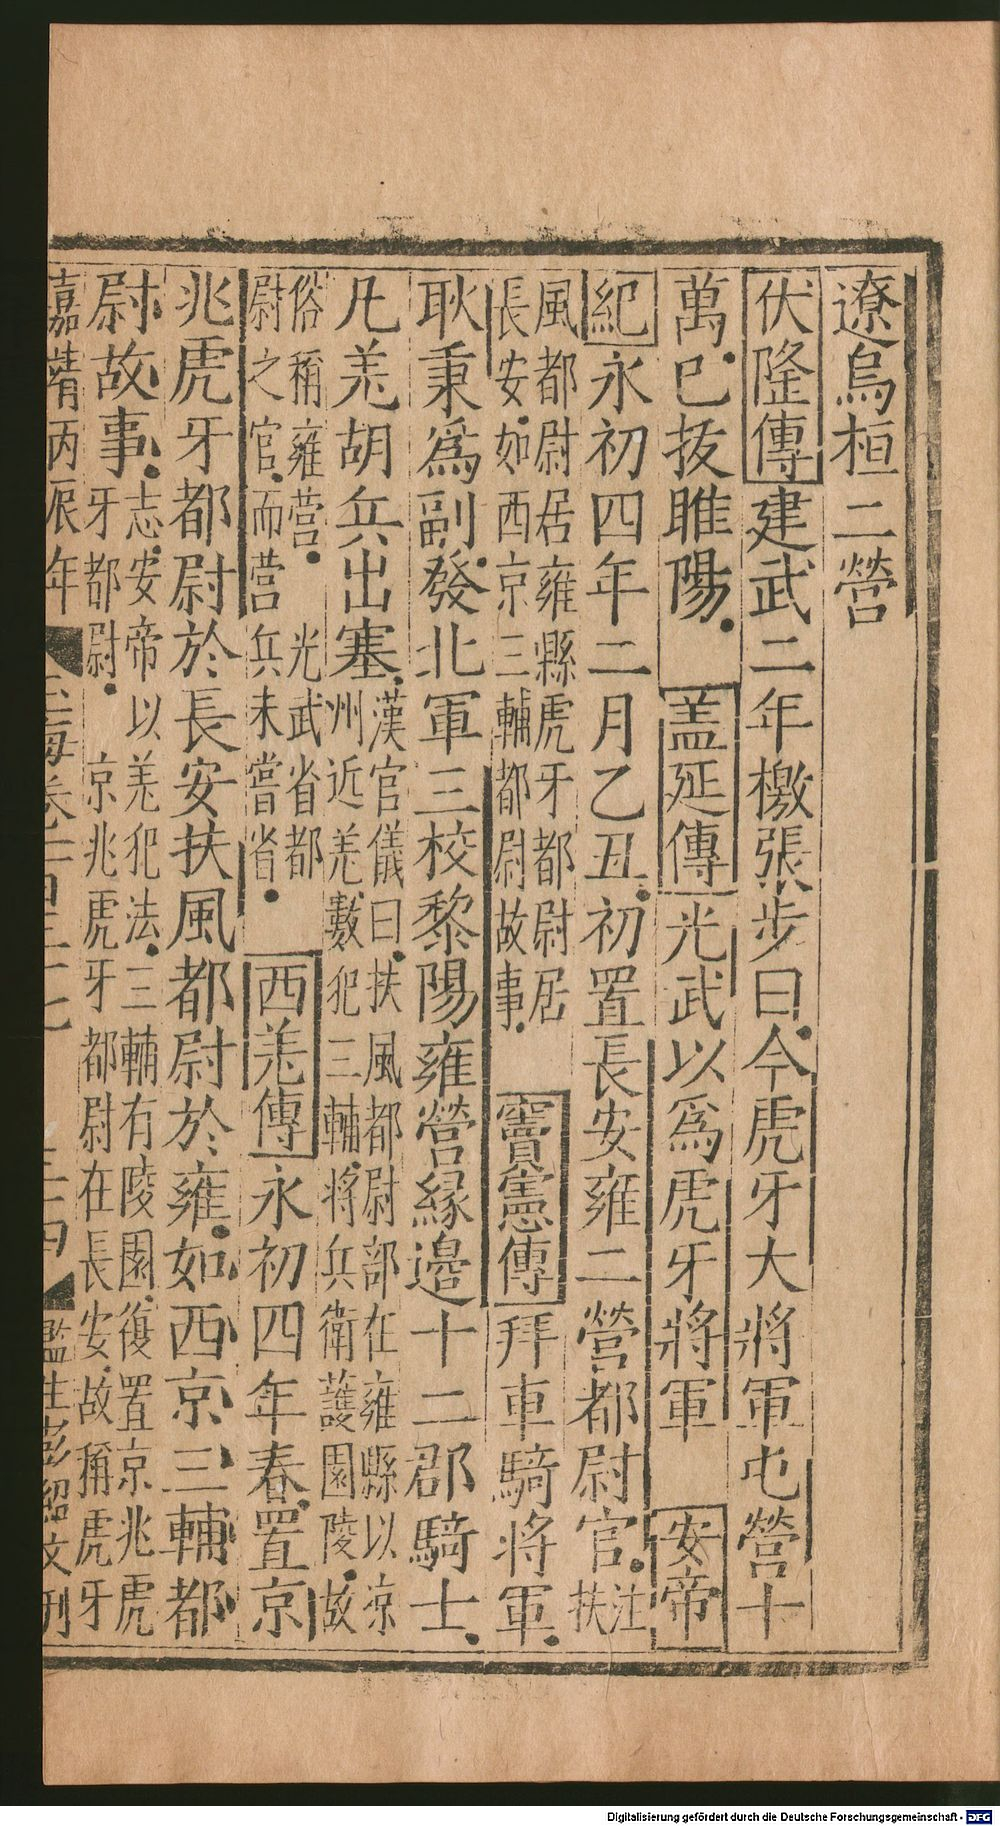 遼烏桓二營
伏隆傳建武二年檄張步曰今虎牙大將軍屯營十
萬已拔睢陽 蓋延傳光武以爲虎牙將軍 安帝
紀永初四年二月乙丑初置長安雍二營都尉官注扶
風都尉居雍縣虎牙都尉居
長安如西京三輔都尉故事 竇憲傳拜車騎將軍
耿秉爲副發北軍三校黎陽雍營緣邊十二郡騎士
凡羌胡兵出塞漢官儀曰扶風都尉部在雍縣以凉
州近羌數犯三輔將兵衛護園陵故
俗稱雍營 光武省都
尉之官而营兵未嘗省 西羌傳永初四年春置京
兆虎牙都尉於長安扶風都尉於雍如西京三輔都
尉故事志安帝以羌犯法三輔有陵園復置京兆虎
牙都尉 京兆虎牙都尉在長安故稱虎牙
嘉靖丙辰年 玉海卷 監生彭紹文刊
Digitalisierung gefördert durch die Deutsche Forschungsgemeinschaft - DFG